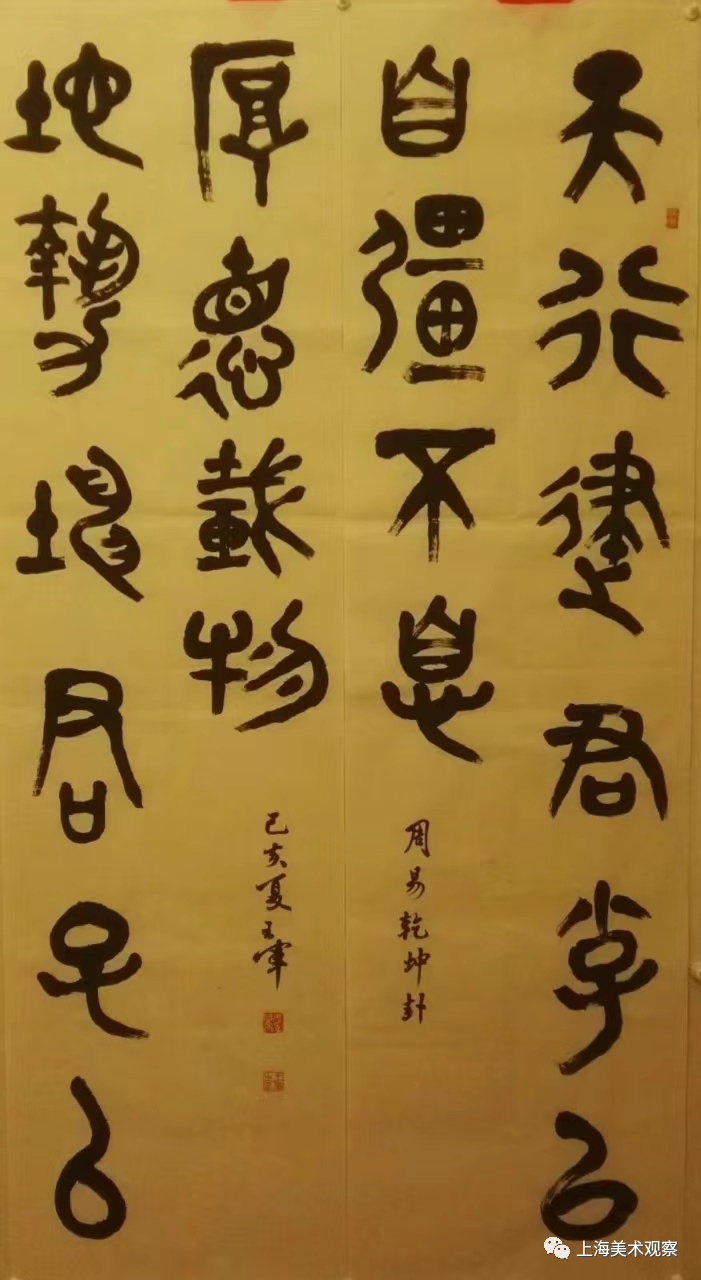 天行健君子以
自彊不息
周易乾坤卦
地勢坤君子以
厚德載物
己亥夏王
上海美术观察